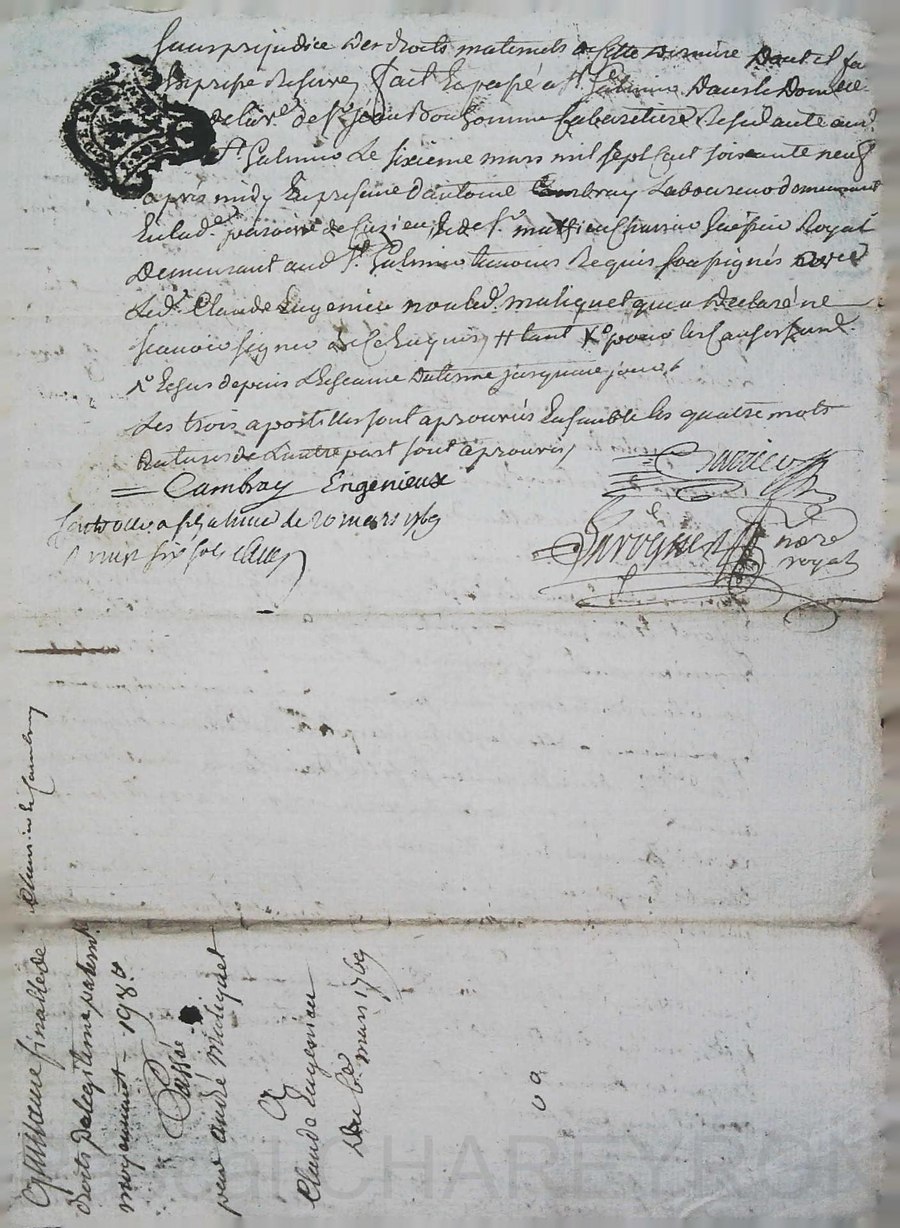 Sans préjudice des droits maternels de cette derniere dont il fa
Expresse Reserve, fait Et passé a St Galmier Dans le Domicile
de la ve. de Sr. Jean Bonhomme Cabaretiere Residante aud.
St. Galmier Le sixieme mars mil sept Cent soixante neuf
apres midy En presence d'antoine Cambray Laboureur demeurant
En lad. paroisse de Cuzieu, & de Sr. mathieu royal
Demurant aud St. Galmier temoins Requis soussignés avec
Led. Claude Eugenieu non led. maliquet qui a Declaré ne
scavoir signer de Ce Enquis, # tant Xo. pour les Causes
Xo. Echus depuis jusqu'a ce jour &
Les trois apostilles sont aprouvés Ensemble les quatre mots
de L'autre part sont aprouvés,
= Cambray Engenieux
Controllé a St Galmier le 20 mars 1769
six sols
nore
royal
Chemin de Cambray
Quittance finalle de
droits de legitime paternels
moyennant - 198 lt
Passée
par andré Maliquet
a
Claude Eugenieu
Du 6e mars 1769
Pascal CHAREYRON